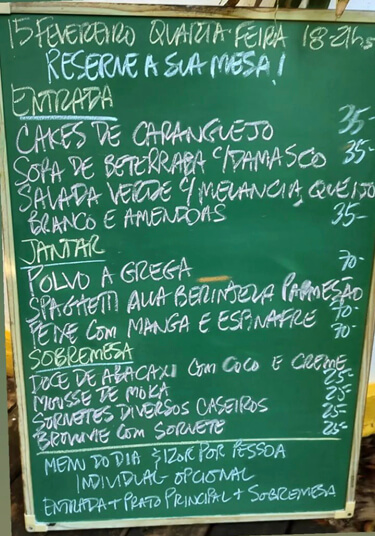 15 FEVEREIRO QUARTA-FEIRA 18-21hs
RESERVE A SUA MESA!
ENTRADA
CAKES DE CARANGUEJO 35-
SOPA DE BETERRABA C/DAMASCO 35-
SALADA VERDE C/ MELANCIA, QUEIJO
BRANCO E AMENDOAS 35-
JANTAR
POLVO A GREGA 70-
SPAGHETTI ALLA BERINJELA PARMESÃO 70-
PEIXE COM MANGA E ESPINAFRE 70-
SOBREMESA
DOCE DE ABACAXI COM COCO E CREME 25-
MOUSSE DE MOKA 25-
SORVETES DIVERSOS CASEIROS 25-
BROWNIE COM SORVETE 25-
MENU DO DIA $120R POR PESSOA
INDIVIDUAL OPCIONAL
ENTRADA + PRATO PRINCIPAL + SOBREMESA